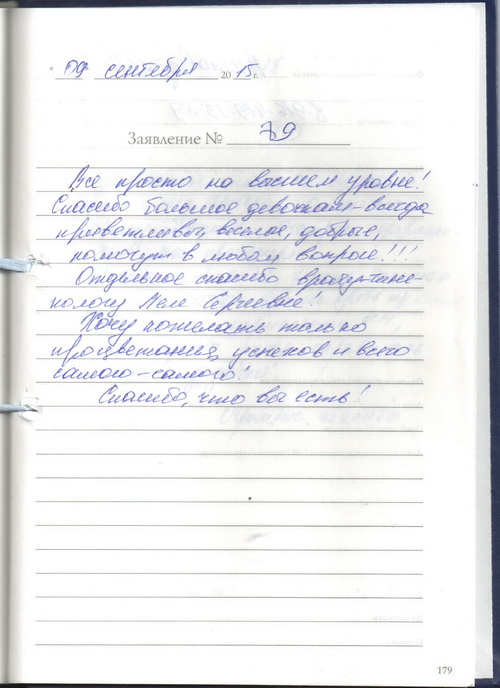 09 сентября 2015г.
Заявление № 79
Все просто на высшем уровне!
Спасибо большое девочкам - всегда
приветливы, веселые, добрые,
помогут в любом вопросе!!!
Отдельное спасибо врачу-гине-
кологу Сергеевне!
Хочу пожелать только
процветания, успехов и всего
самого-самого!
Спасибо, что вы есть!
179